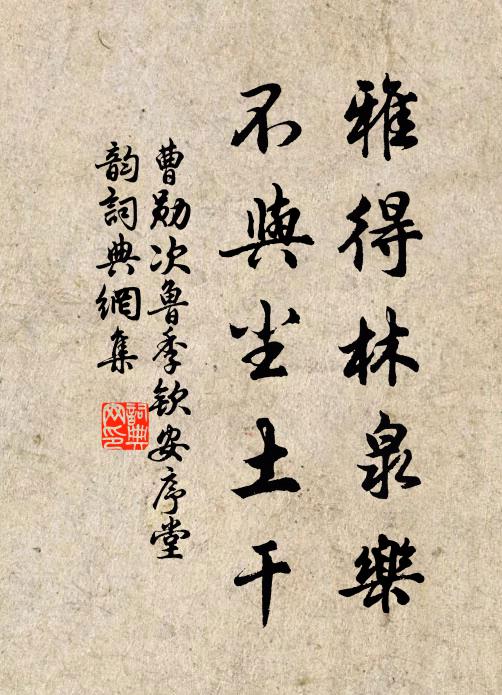 雅得林泉樂
不與尘土干
曹勋次魯季欽安序堂
韵詞典網集
詞典
网印